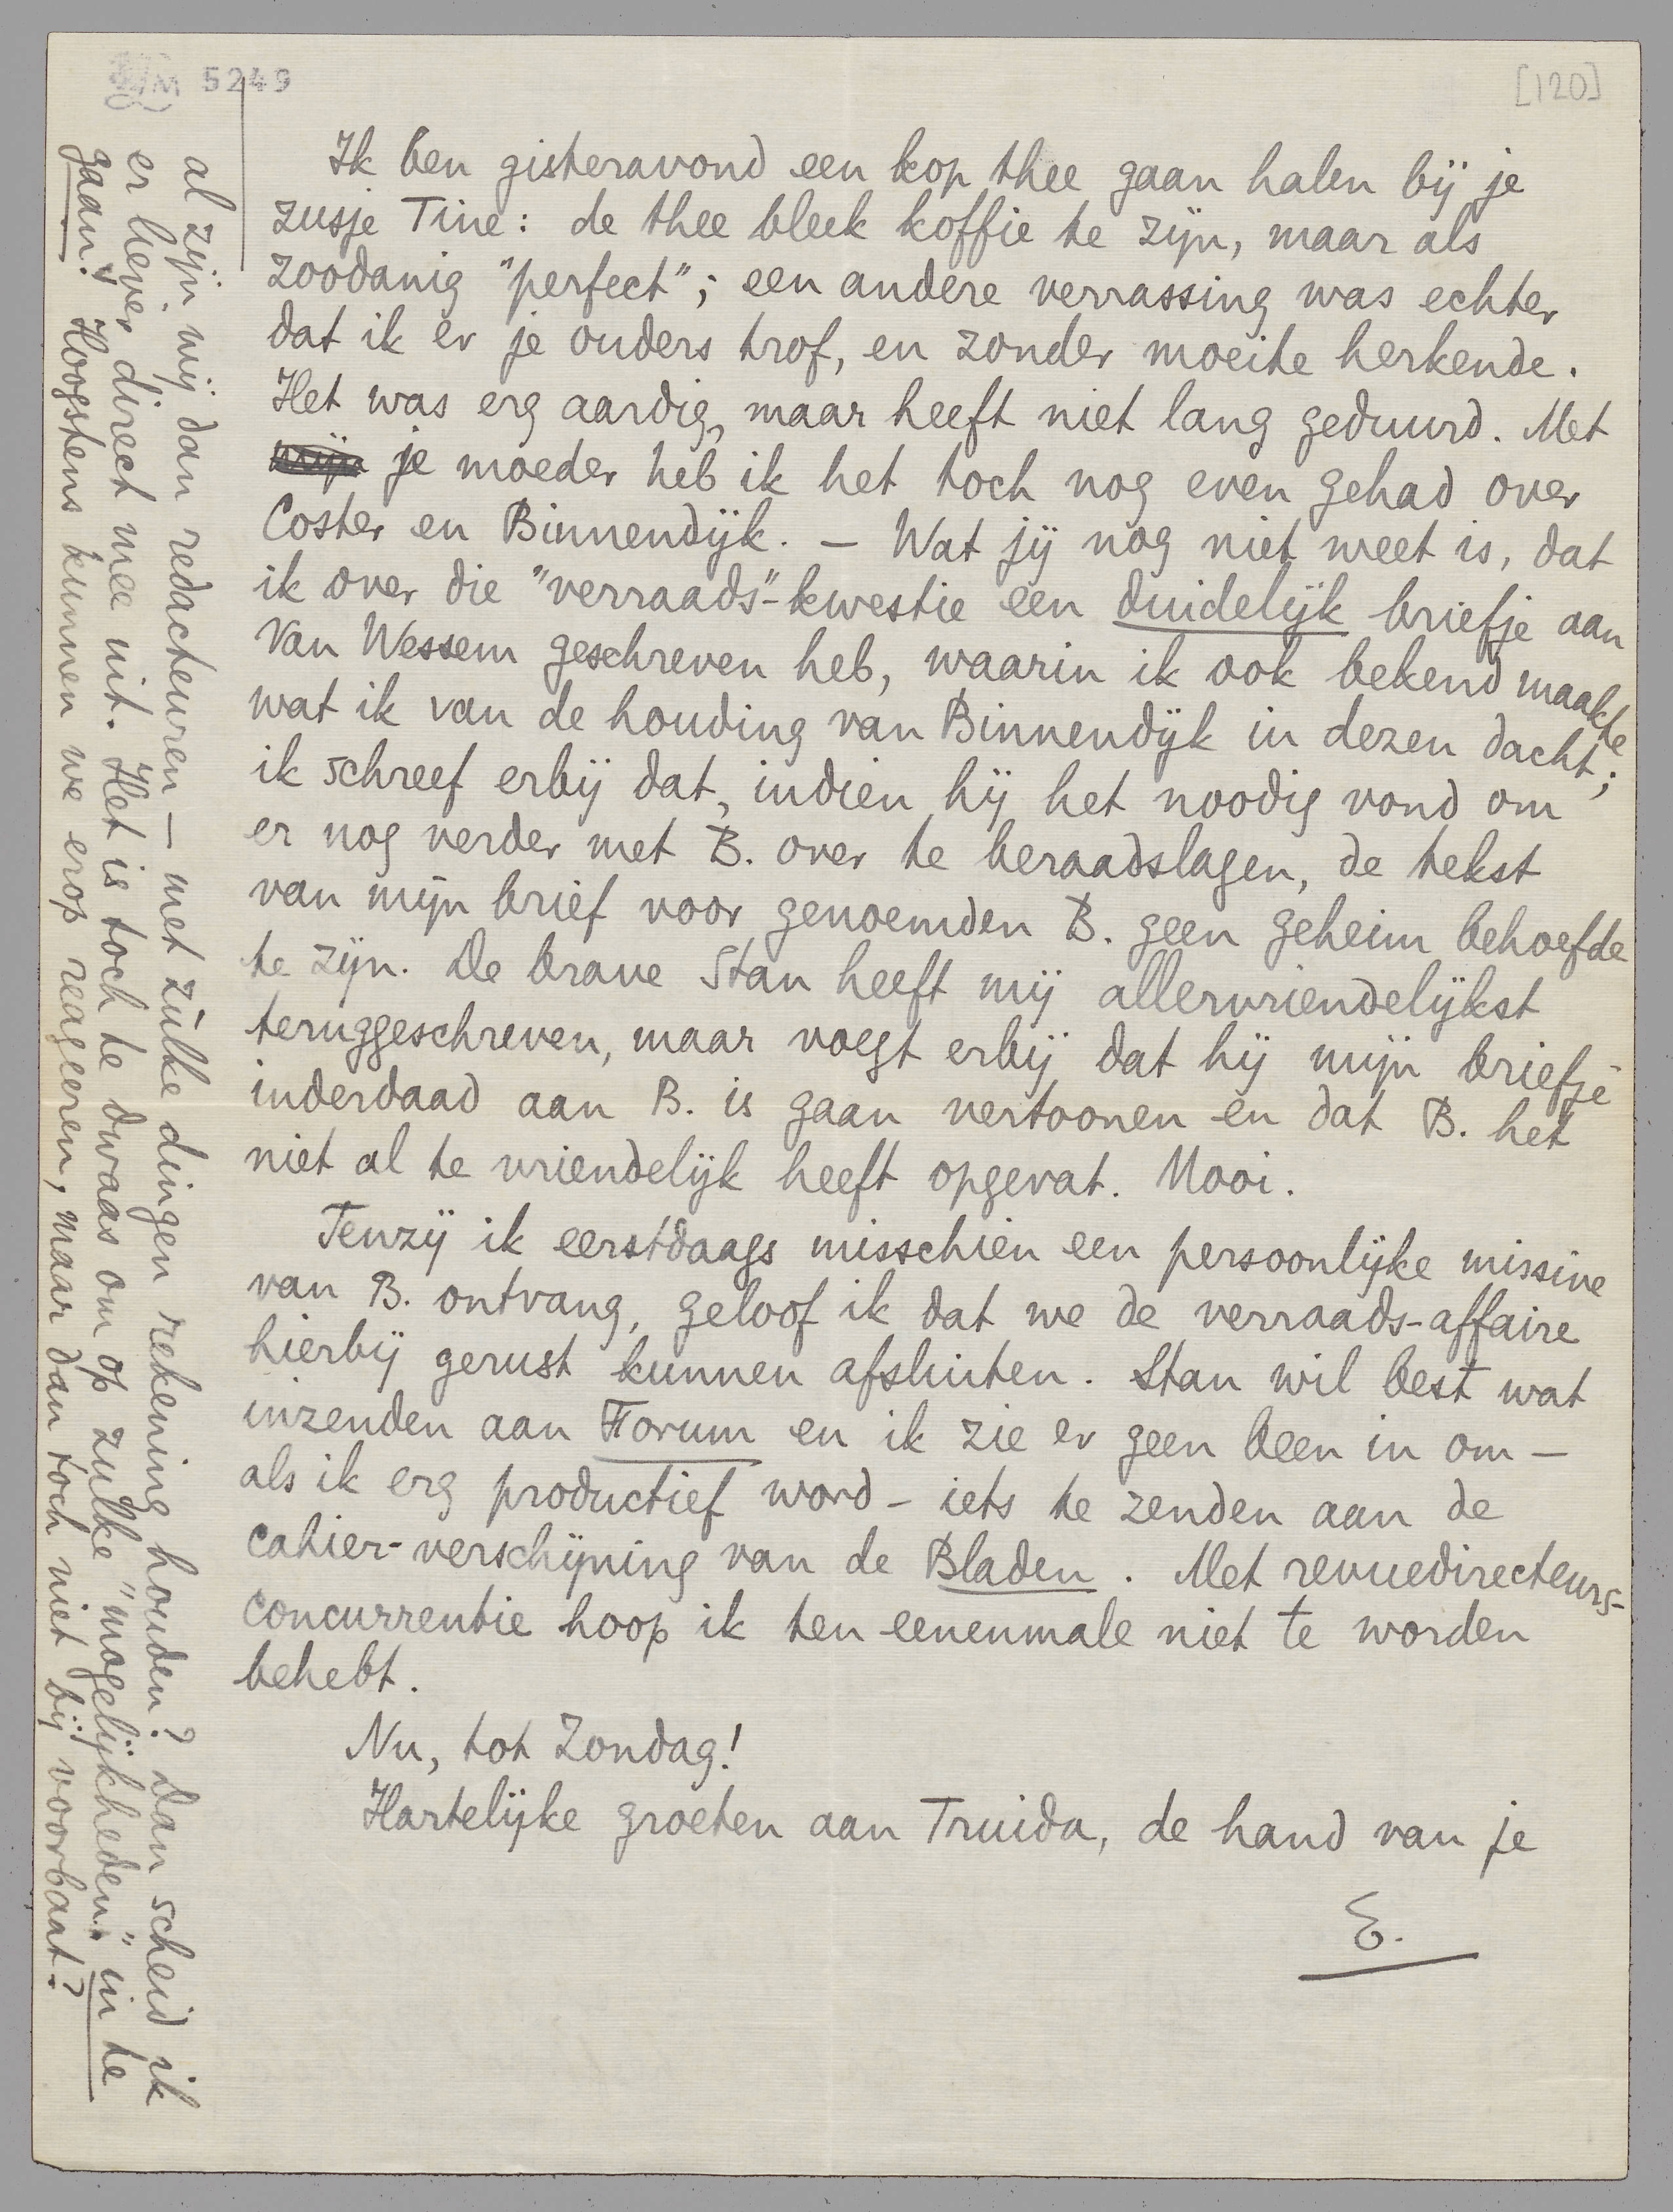 5249
[120]
Ik ben gisteravond een kop thee gaan halen bij je
zusje Tine: de thee bleek koffie te zijn, maar als
zoodanig "perfect"; een andere verrassing was echter
dat ik er je ouders trof, en zonder moeite herkende.
Het was erg aardig, maar heeft niet lang geduurd. Met
je moeder heb ik het toch nog even gehad over
Coster en Binnendijk. — Wat jij nog niet weet is, dat
ik over die "verraads"-kwestie een duidelijk briefje aan
Van Wessem geschreven heb, waarin ik ook bekend maakte
wat ik van de houding van Binnendijk in dezen dacht;
ik schreef erbij dat, indien hij het noodig vond om
er nog verder met B. over te beraadslagen, de tekst
van mijn brief voor genoemden B. geen geheim behoefde
te zijn. De brave Stan heeft mij allervriendelijkst
teruggeschreven, maar voegt erbij dat hij mijn briefje
inderdaad aan B. is gaan vertoonen en dat B. het
niet al te vriendelijk heeft opgevat. Mooi.
Tenzij ik eerstdaags misschien een persoonlijke missive
van B. ontvang, geloof ik dat we de verraads-affaire
hierbij gerust kunnen afsluiten. Stan wil best wat
inzenden aan Forum en ik zie er geen been in om —
als ik erg productief word — iets te zenden aan de
cahier-verschijning van de Bladen. Met revuedirecteurs-
concurrentie hoop ik ten eenenmale niet te worden
behebt.
Nu, tot Zondag!
Hartelijke groeten aan Truida, de hand van je
E.
al zijn wij dan redacteuren — met zùlke dingen rekening houden? Dan scheid ik
er liever direct mee uit. Het is toch te dwaas om op zulke "mogelijkheden" in te
gaan! Hoogstens kunnen we erop reageeren, maar dan toch niet bij voorbaat?